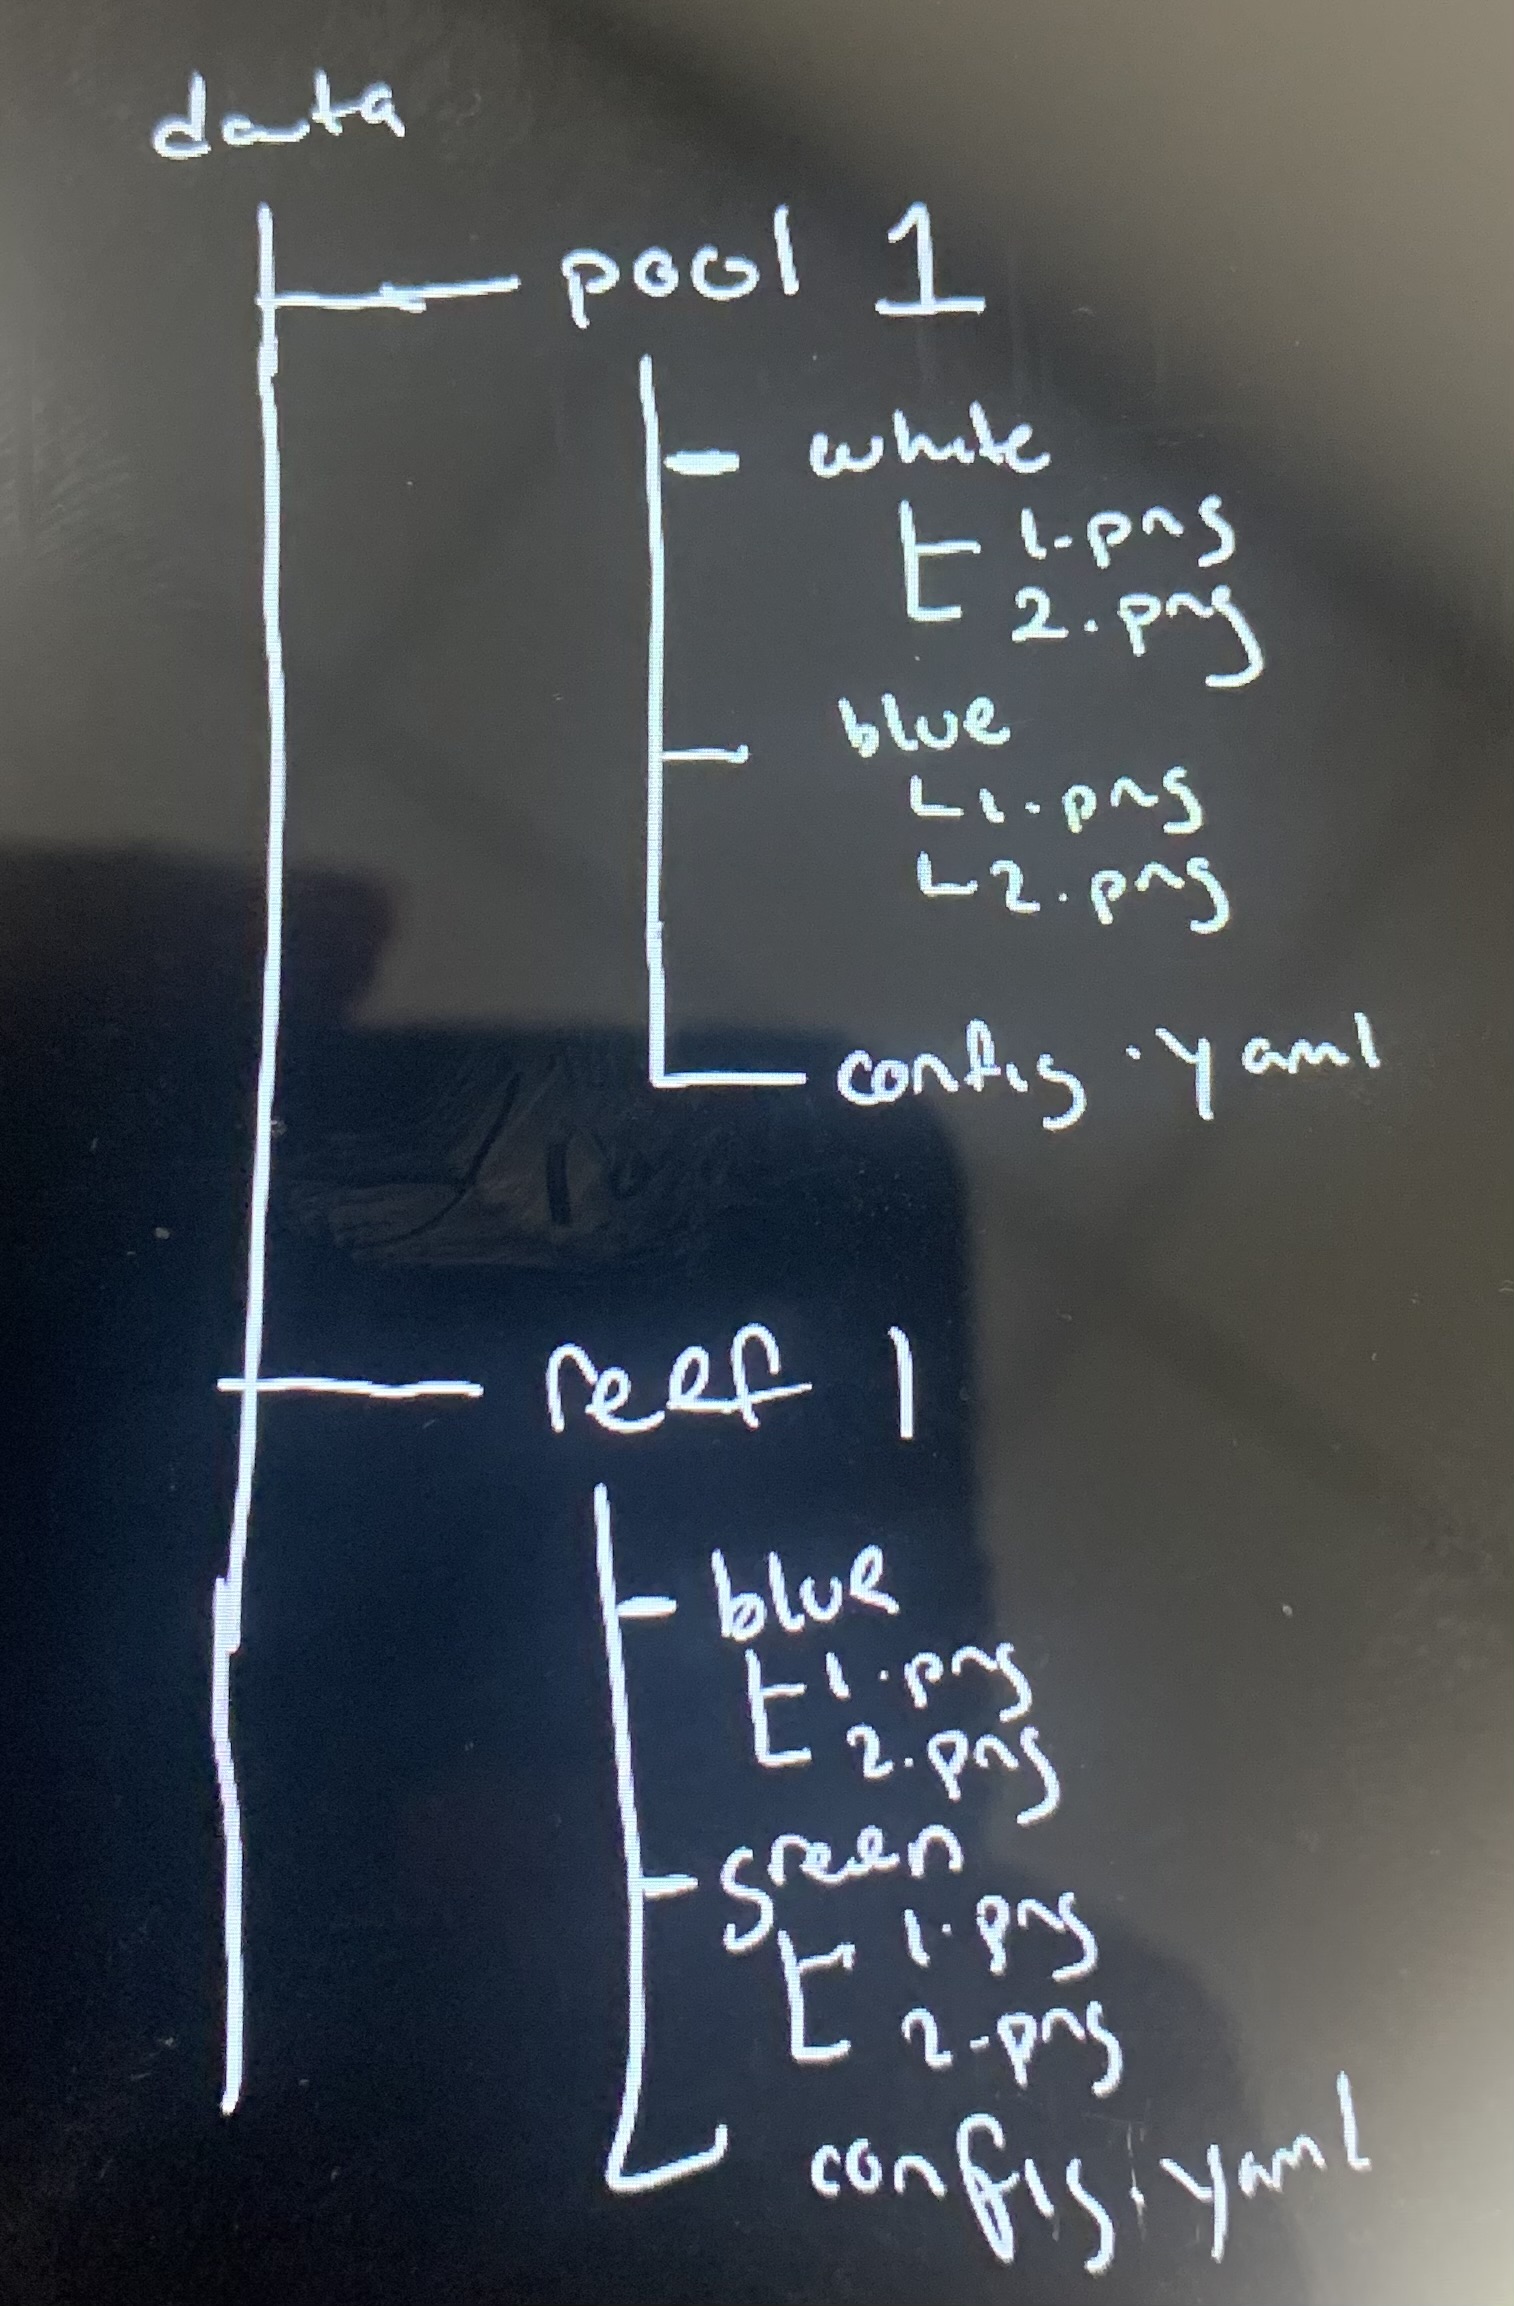 data
pool 1
white
1.png
2.png
blue
1.png
2.png
config.yaml
reef 1
blue
1.png
2.png
green
1.png
2.png
config.yaml